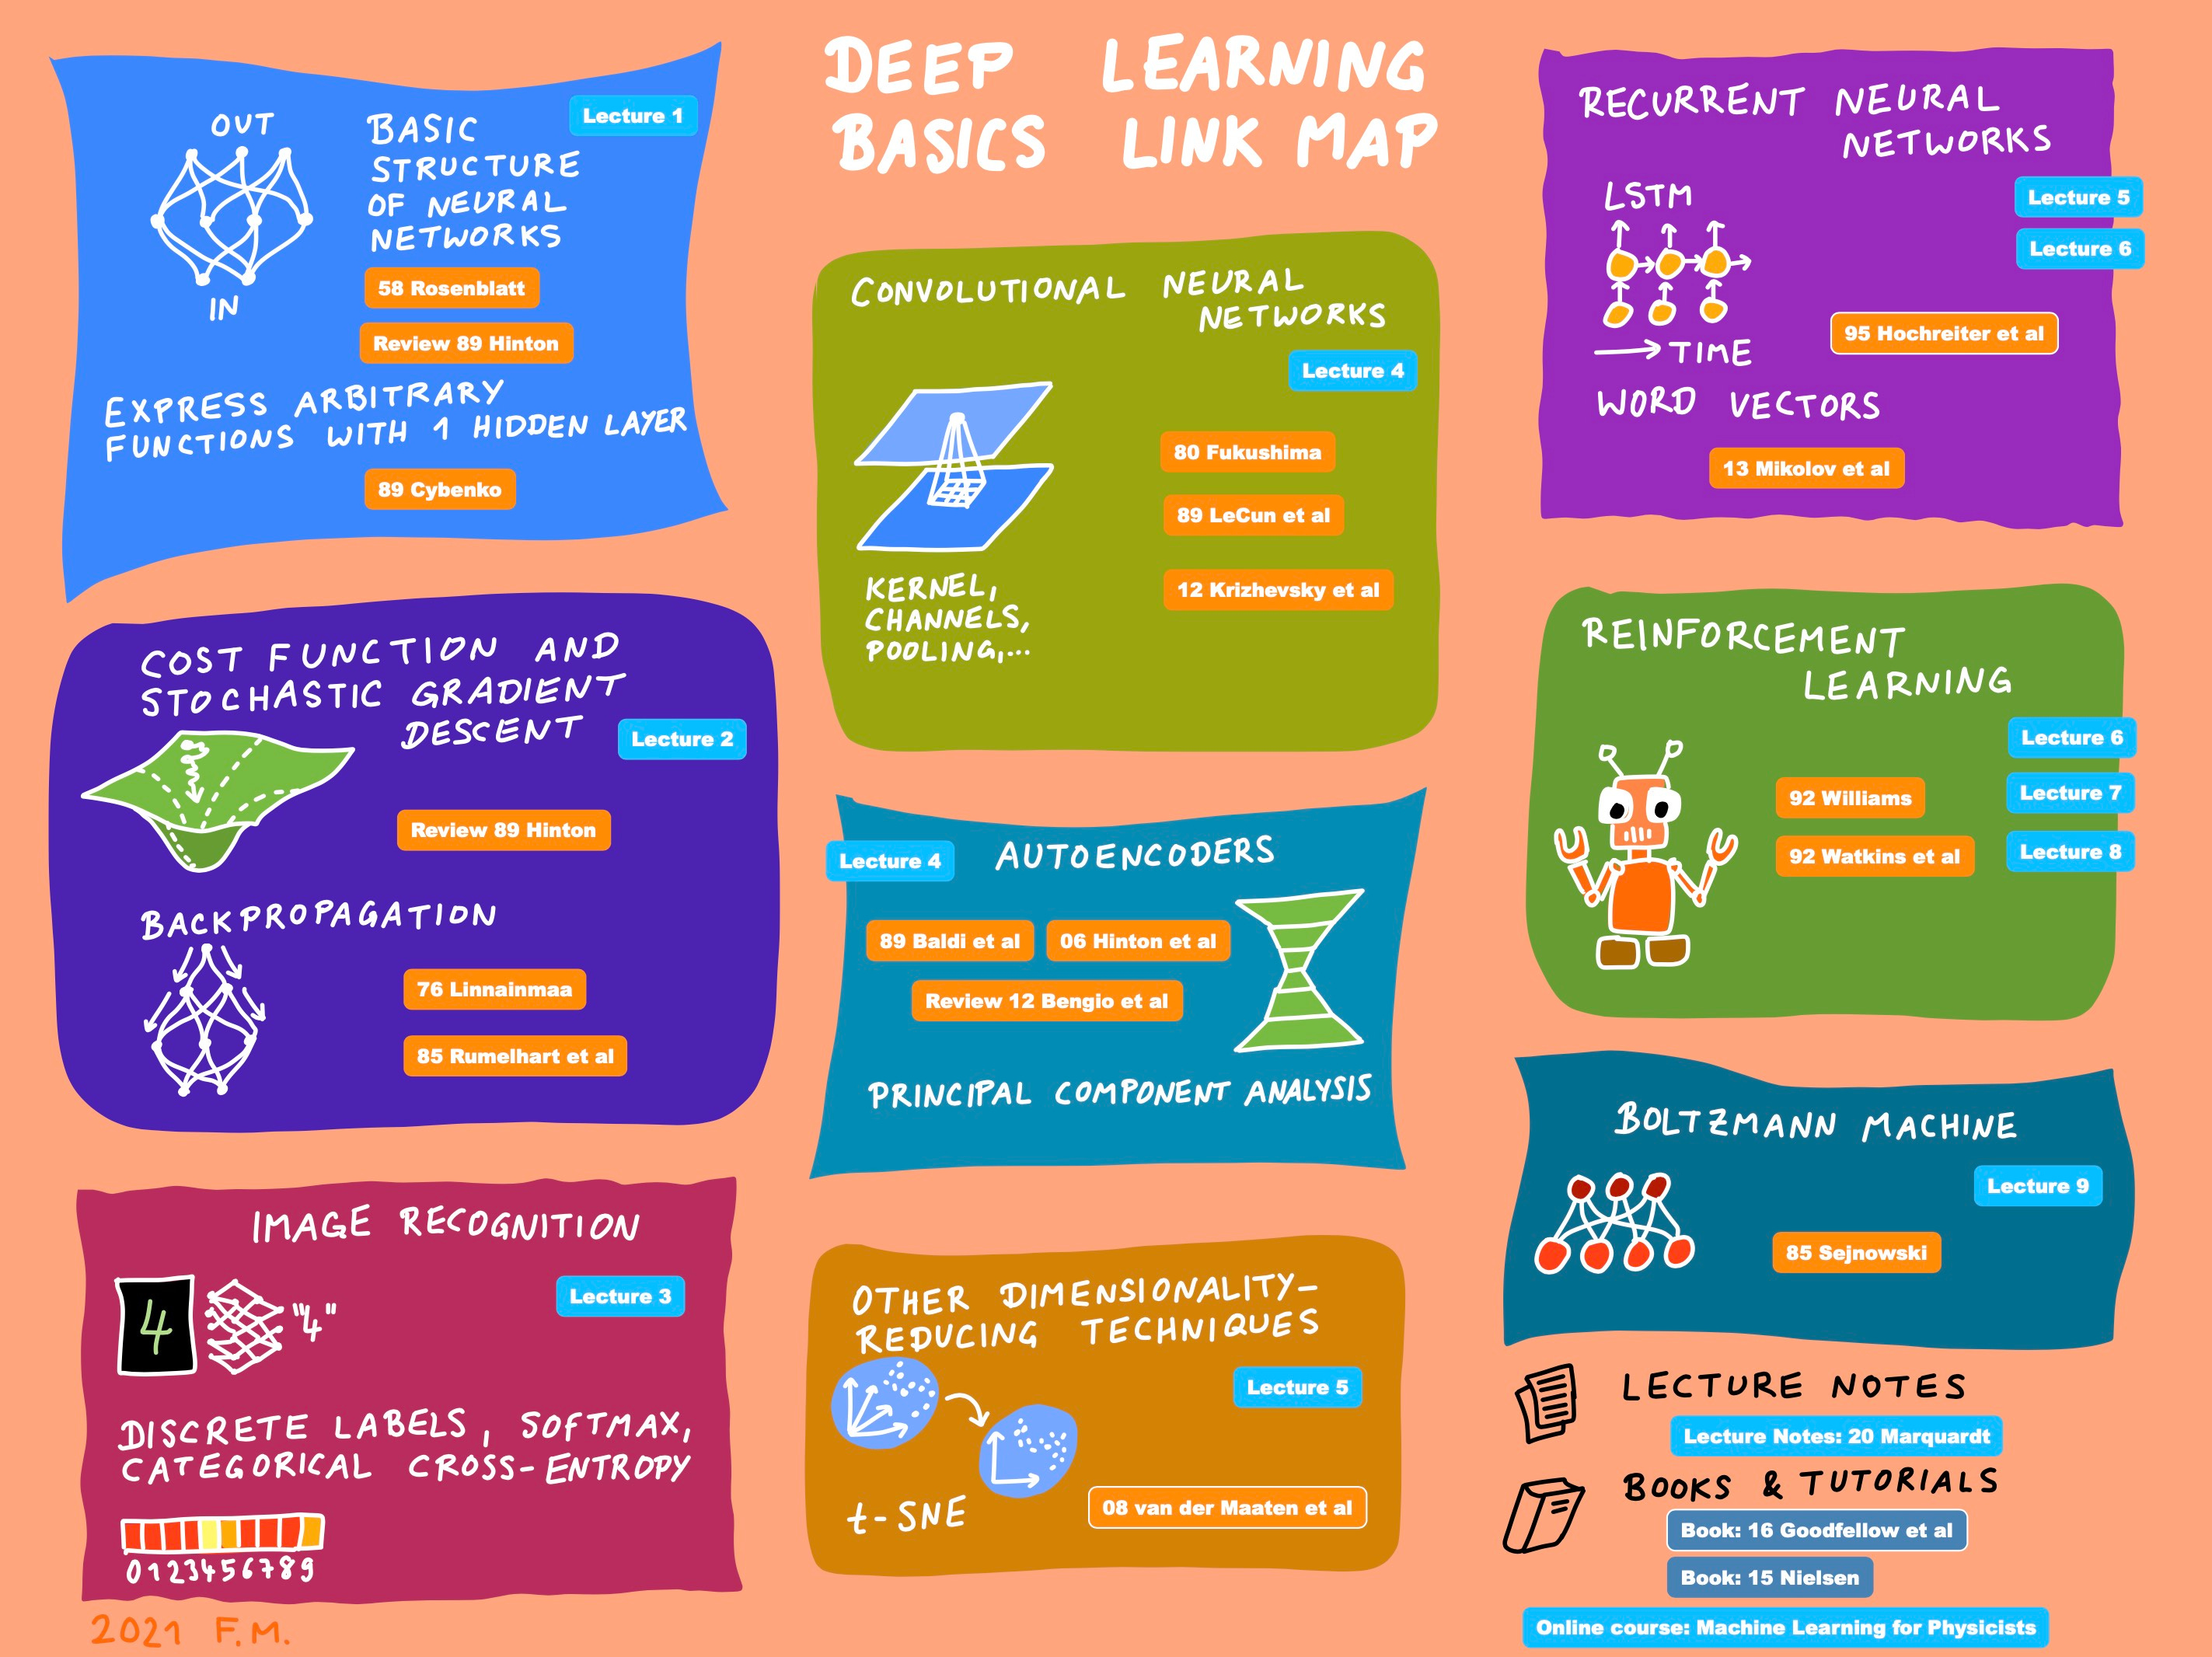 DEEP LEARNING
BASICS LINK MAP
OUT
IN
BASIC
STRUCTURE
OF NEURAL
NETWORKS
Lecture 1
58 Rosenblatt
Review 89 Hinton
EXPRESS ARBITRARY
FUNCTIONS WITH 1 HIDDEN LAYER
89 Cybenko
COST FUNCTION AND
STOCHASTIC GRADIENT
DESCENT
Lecture 2
Review 89 Hinton
BACKPROPAGATION
76 Linnainmaa
85 Rumelhart et al
IMAGE RECOGNITION
Lecture 3
4
"4"
DISCRETE LABELS, SOFTMAX,
CATEGORICAL CROSS-ENTROPY
0123456789
2021 F.M.
CONVOLUTIONAL NEURAL
NETWORKS
Lecture 4
80 Fukushima
89 LeCun et al
12 Krizhevsky et al
KERNEL,
CHANNELS,
POOLING,...
Lecture 4
AUTOENCODERS
89 Baldi et al
06 Hinton et al
Review 12 Bengio et al
PRINCIPAL COMPONENT ANALYSIS
OTHER DIMENSIONALITY-
REDUCING TECHNIQUES
Lecture 5
t-SNE
08 van der Maaten et al
RECURRENT NEURAL
NETWORKS
LSTM
Lecture 5
Lecture 6
95 Hochreiter et al
TIME
WORD VECTORS
13 Mikolov et al
REINFORCEMENT
LEARNING
Lecture 6
Lecture 7
Lecture 8
92 Williams
92 Watkins et al
BOLTZMANN MACHINE
Lecture 9
85 Sejnowski
LECTURE NOTES
Lecture Notes: 20 Marquardt
BOOKS & TUTORIALS
Book: 16 Goodfellow et al
Book: 15 Nielsen
Online course: Machine Learning for Physicists